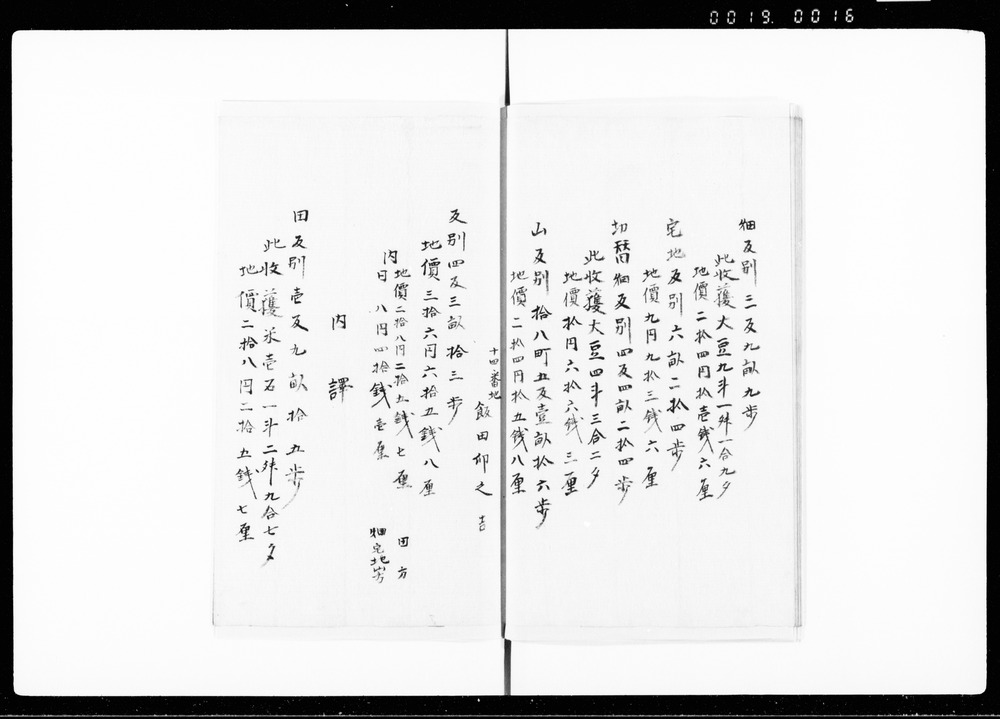 0019. 0016
畑反別 三反九畝九歩
此收獲大豆九斗一舛一合九夕
地價二拾四円拾壱銭六厘
宅地反別六畝二拾四歩
地價九円九拾三銭六厘
切替畑反別四反四畝二拾四歩
此收獲大豆四斗三合二夕
地價拾円六拾六銭三厘
山反別拾八町五反壹畝拾六歩
地價二拾四円拾五銭八厘
十四番地
飯田仰之吉
反別四反三畝拾三歩
地價三拾六円六拾五銭八厘
内 地價二拾八円二拾五銭七厘 田方
日 八円四拾銭壱厘 畑宅地山方
内譯
田反別壱反九畝拾五歩
此收獲米壱石一斗二舛九合七夕
地價二拾八円二拾五銭七厘